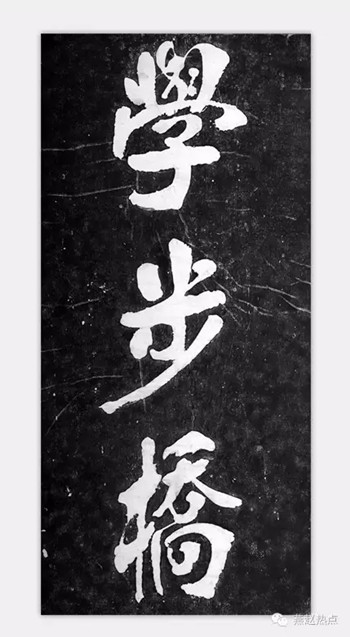 學步橋
燕赵热点